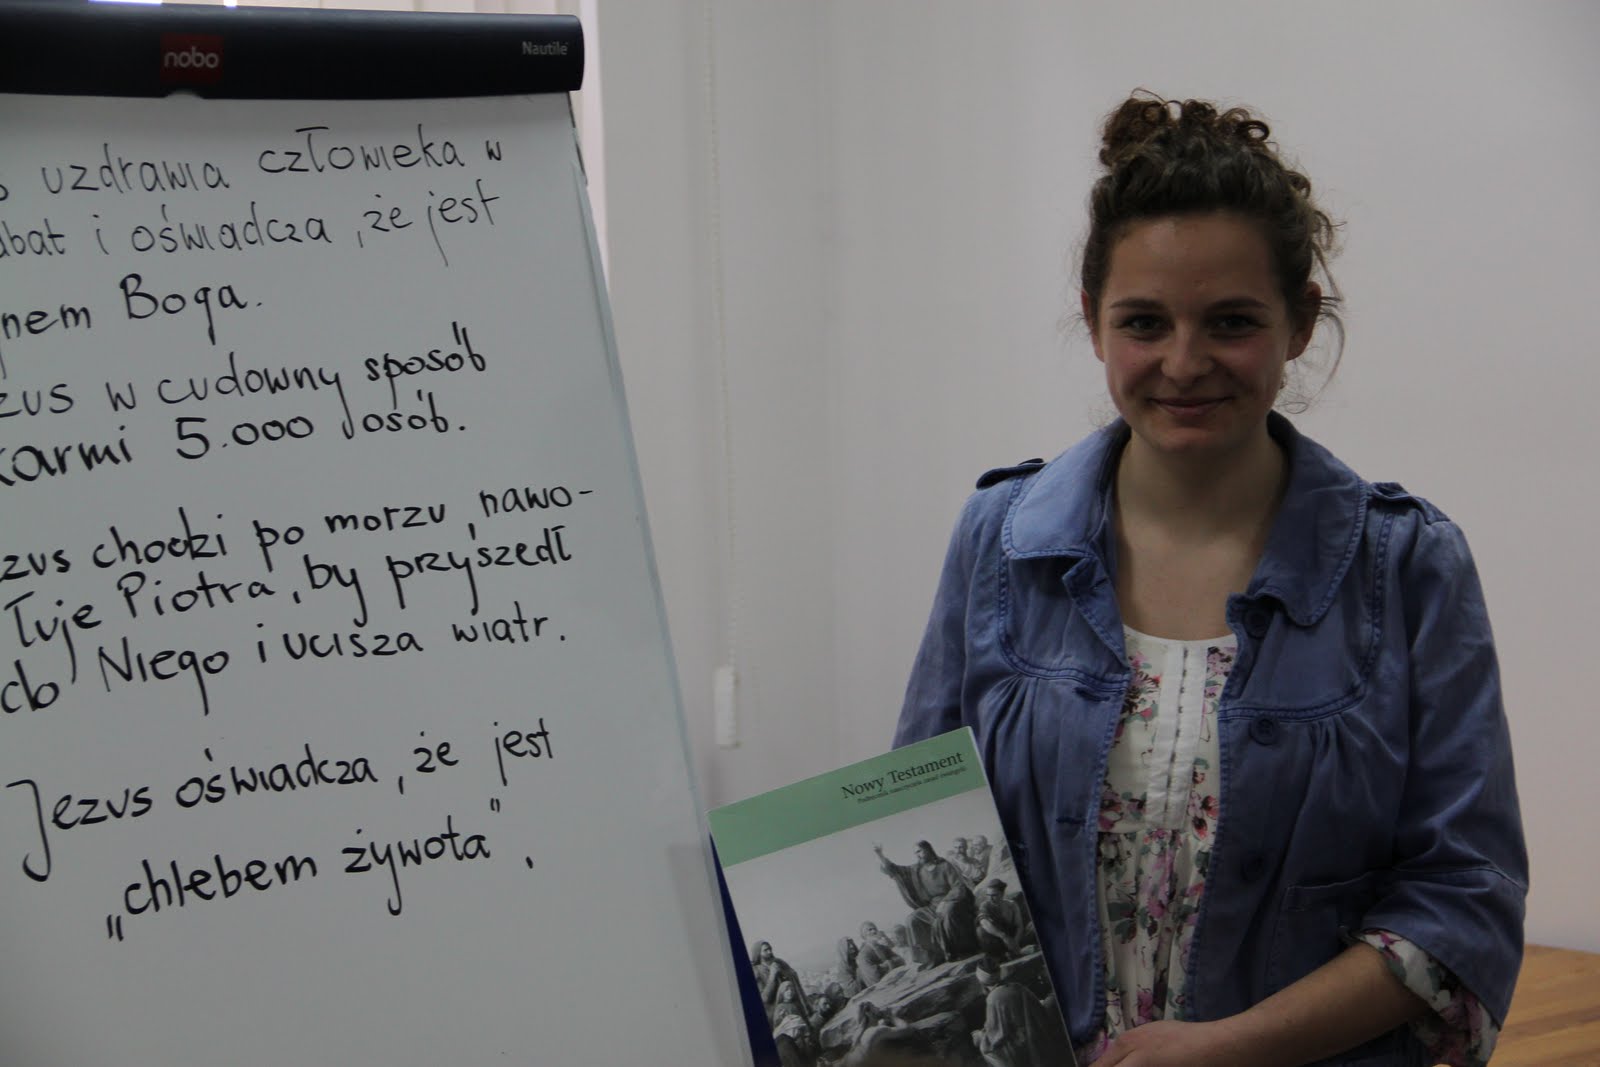 nobo
Nautile
uzdrawia człowieka w
abat i oświadcza, że jest
ynem Boga.
zus w cudowny sposób
karmi 5.000 osób.
zus chodzi po morzu, nawo-
łuje Piotra, by przyszedł
do Niego i ucisza wiatr.
Jezus oświadcza, że jest
„chlebem żywota”.
Nowy Testament
Podręcznik nauczyciela zasad ewangelii